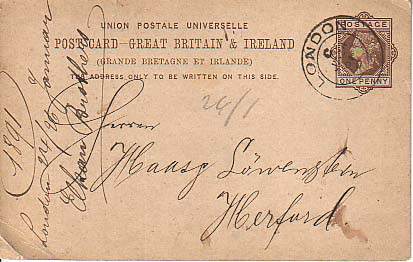 UNION POSTALE UNIVERSELLE
POST CARD - GREAT BRITAIN & IRELAND
(GRANDE BRETAGNE ET IRLANDE)
THE ADDRESS ONLY TO BE WRITTEN ON THIS SIDE.
POSTAGE
ONE PENNY
LONDON
24/1
Herren
Haas & Löwenstein
Herford.
1891
London 24/26 Januar